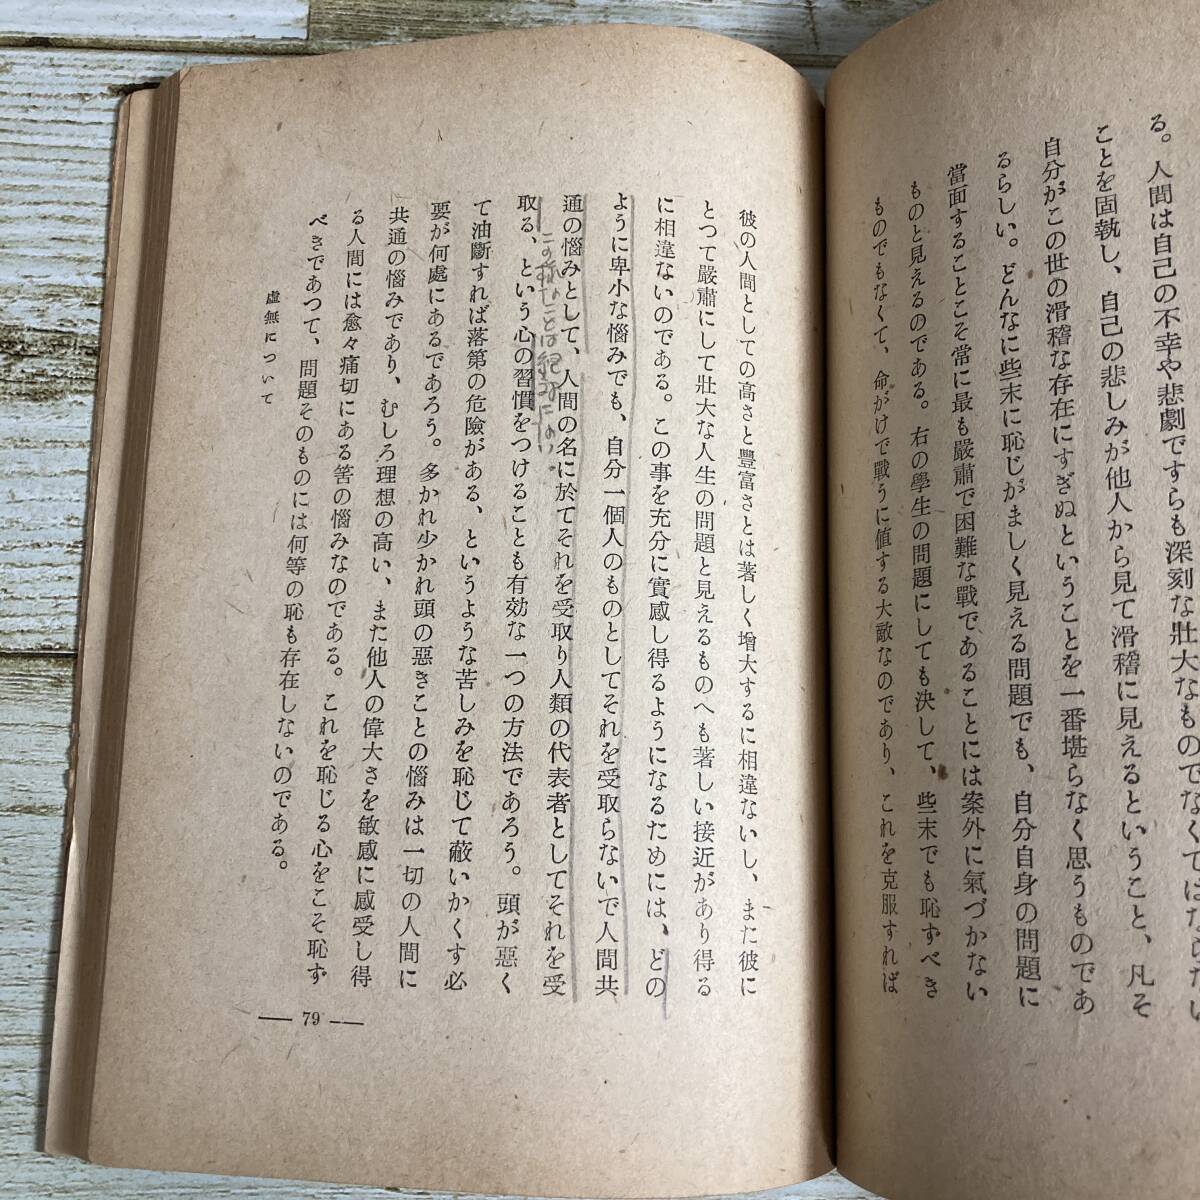 る。人間は自己の不幸や悲劇ですらも深刻な壯大なものでなくてはならない
ことを固執し、自己の悲しみが他人から見て滑稽に見えるということ、凡そ
自分がこの世の滑稽な存在にすぎぬということを一番堪らなく思うものであ
るらしい。どんなに些末に恥じがましく見える問題でも、自分自身の問題に
當面することこそ常に最も嚴肅で困難な戰であることには案外に氣づかない
ものと見えるのである。右の學生の問題にしても決して、些末でも恥ずべき
ものでもなくて、命がけで戰うに値する大敵なのであり、これを克服すれば
彼の人間としての高さと豐富さとは著しく增大するに相違ないし、また彼に
とつて嚴肅にして壯大な人生の問題と見えるものへも著しい接近があり得る
に相違ないのである。この事を充分に實感し得るようになるためには、どの
ように卑小な惱みでも、自分一個人のものとしてそれを受取らないで人間共
通の惱みとして、人間の名に於てそれを受取り人類の代表者としてそれを受
この様なことは絶対にない
取る、という心の習慣をつけることも有効な一つの方法であろう。頭が惡く
て油斷すれば落第の危險がある、というような苦しみを恥じて蔽いかくす必
要が何處にあるであろう。多かれ少かれ頭の惡きことの惱みは一切の人間に
共通の惱みであり、むしろ理想の高い、また他人の偉大さを敏感に感受し得
る人間には愈々痛切にある筈の惱みなのである。これを恥じる心をこそ恥ず
べきであつて、問題そのものには何等の恥も存在しないのである。
虚無について
— 79 —